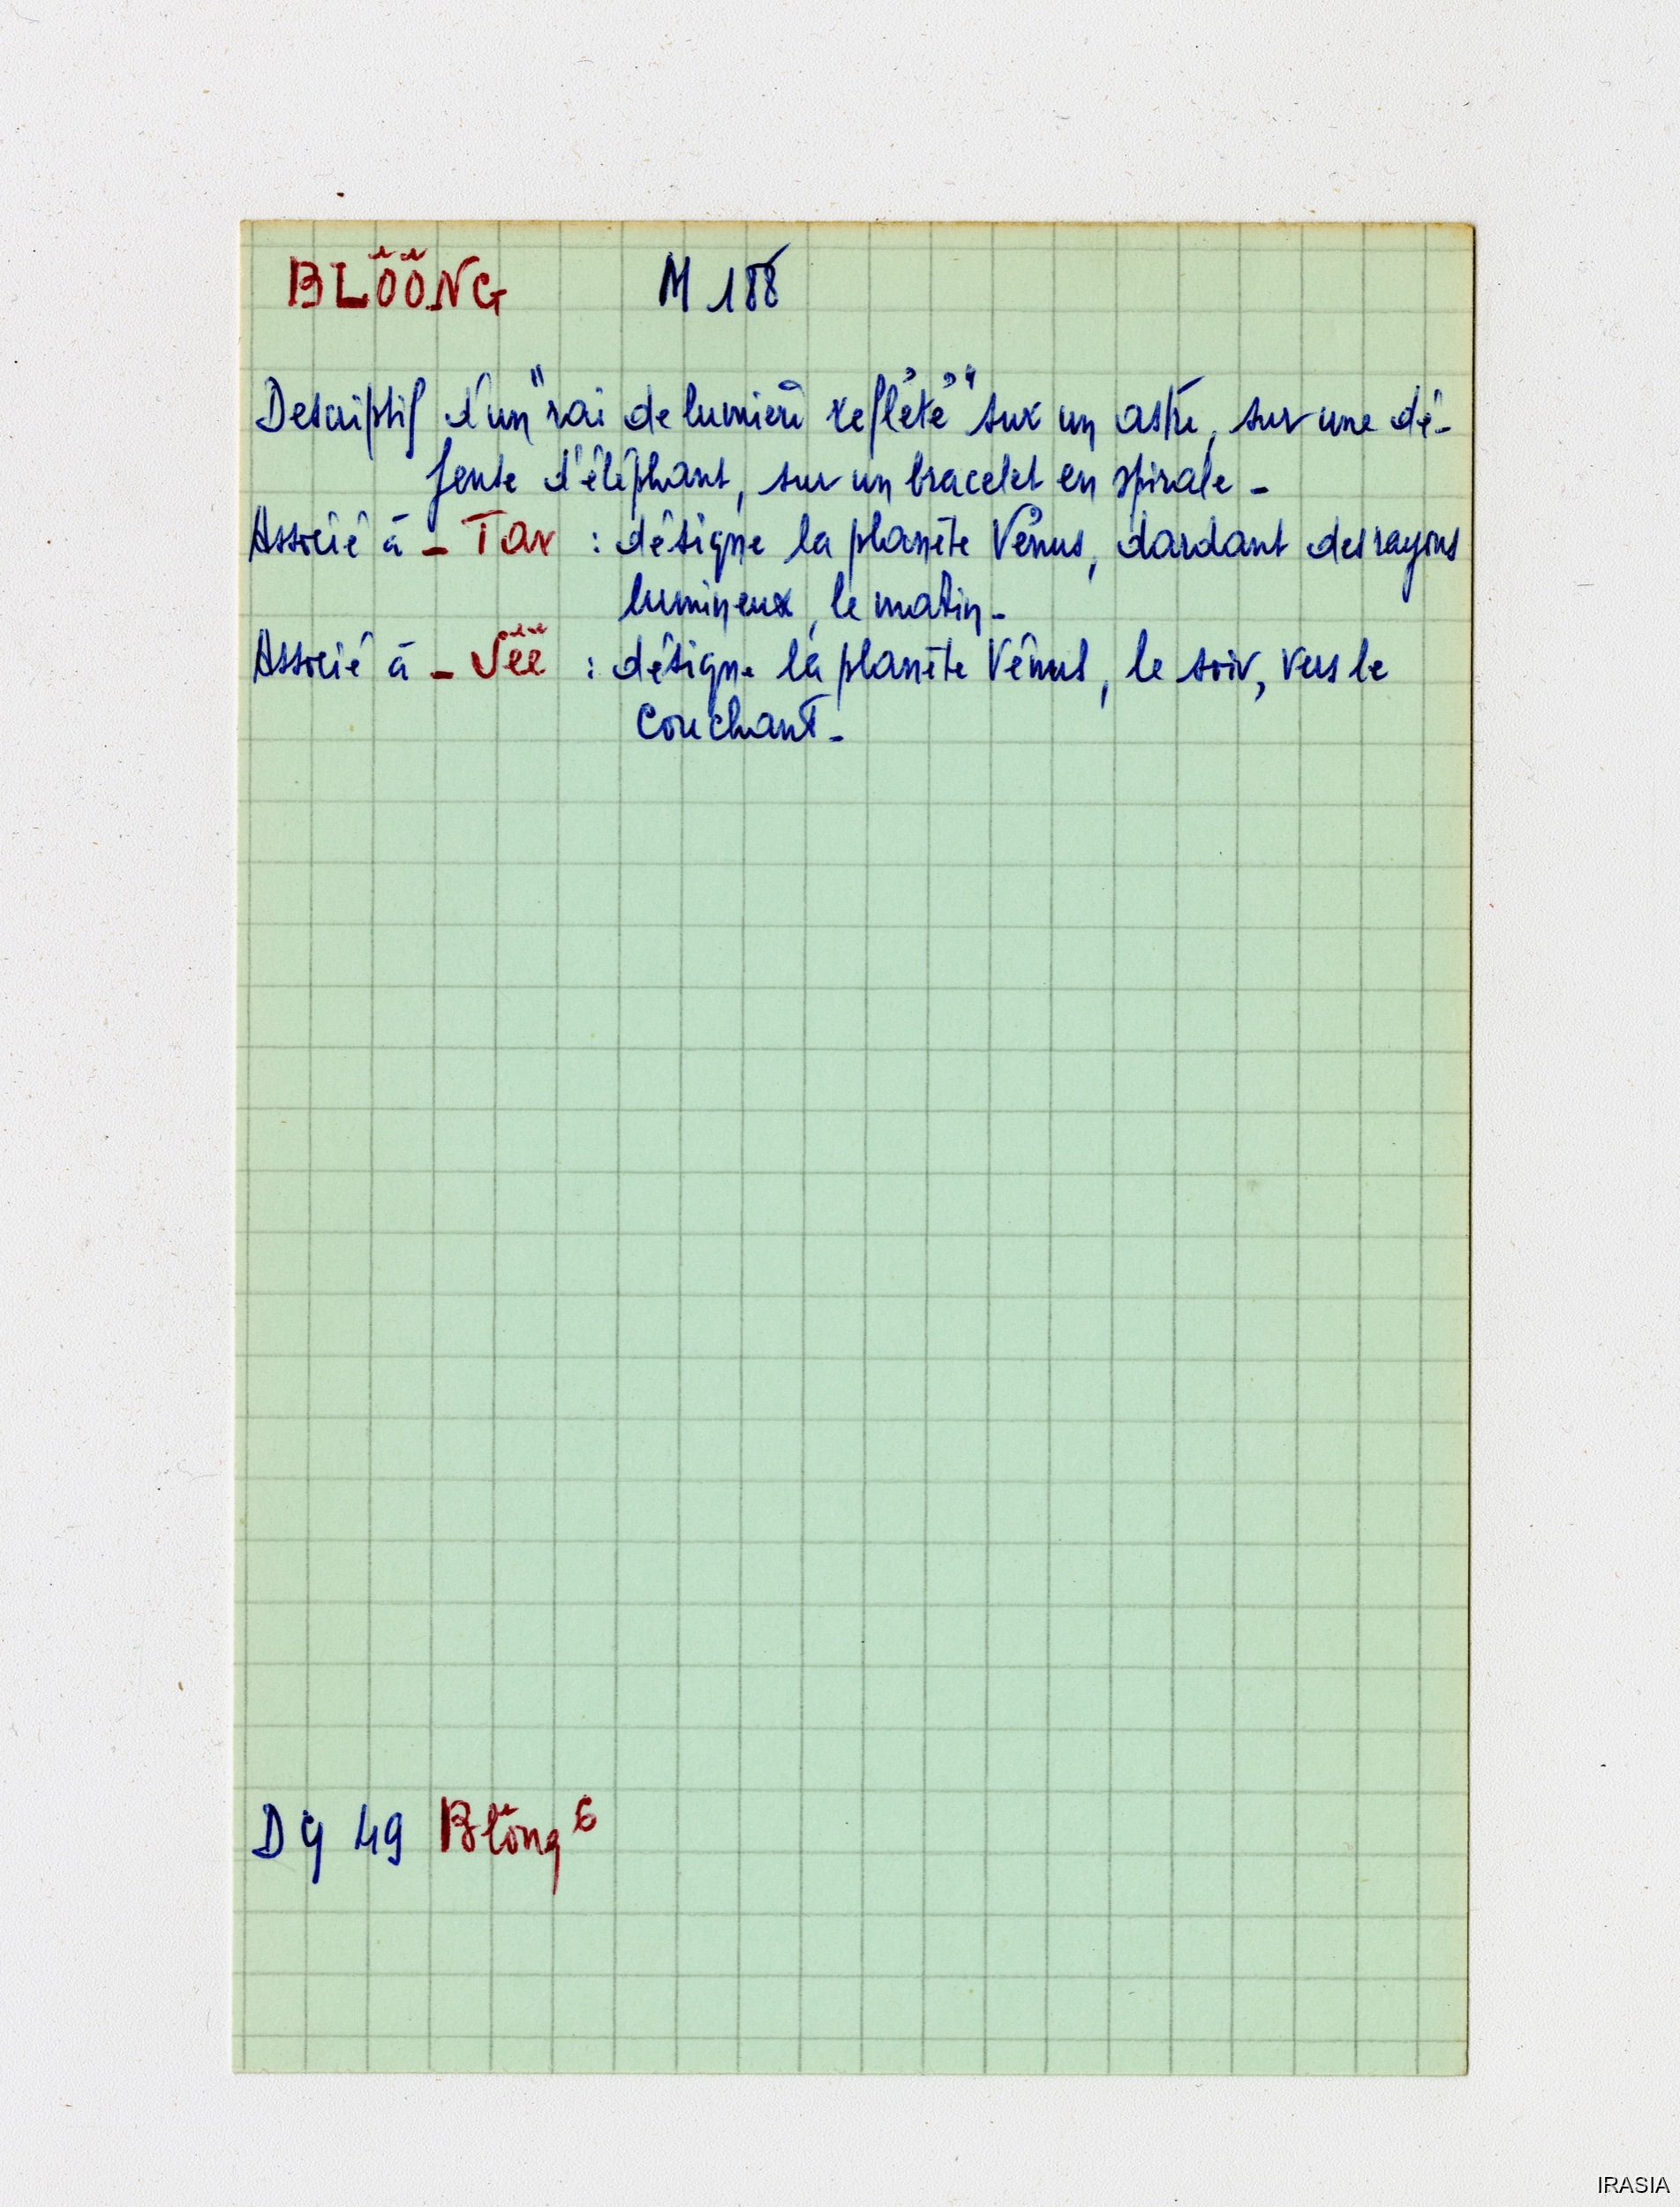 BLÖÖNG M 188
Descriptif d'un "rai de lumière reflété" sur un astre, sur une dé-
fense d'éléphant, sur un bracelet en spirale -
Associé à - Tar : désigne la planète Vénus, dardant des rayons
lumineux, le matin -
Associé à - Vëë : désigne la planète Vénus, le soir, vers le
couchant -
DG 49 Blöng 6
IRASIA